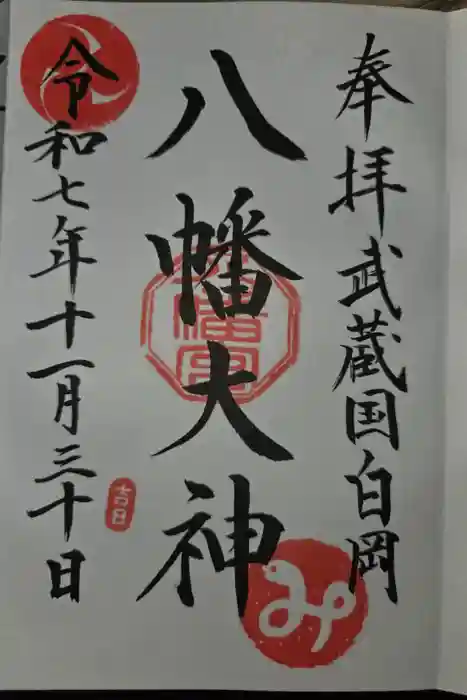 奉拝武蔵国白岡
八幡大神
八幡宮
み
令和七年十一月三十日
吉日